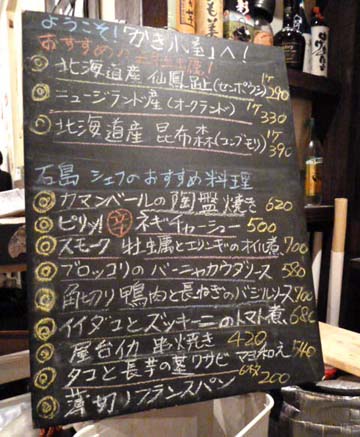 ようこそ!「かき小屋」へ!
おすすめ 生牡蠣!
北海道産 仙鳳趾(センポウシ) 1ケ 290
ニュージランド産(オークランド) 1ケ 330
北海道産 昆布森(コンブモリ) 1ケ 390
石島 シェフのおすすめ料理
カマンベールの陶盤焼き 620
ピリッ!辛 ネギチャーシュー 500
スモーク 牡蠣とエリンギのオイル煮 700
ブロッコリのバーニャカウダソース 580
角切り鴨肉と長ねぎのバジルソース 700
イイダコとズッキーニのトマト煮 680
屋台イカ 串焼き 420
タコと長芋の茎ワサビ マヨ和え 540
薄切りフランスパン 200